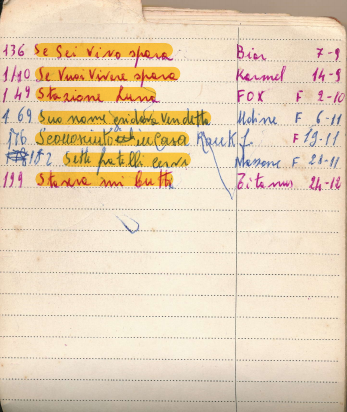 136 Se Sei Vivo spara Bior 7-9
140 Se Vuoi Vivere spara Karmel 14-9
149 Stazione Luna FOX F 2-10
169 Suo nome gridava Vendetta F 6-11
176 Sconosciuto in Casa Rank F 19-11
182 Sette fratelli cervi F 21-11
199 Stasera mi butto Titanus 24-12